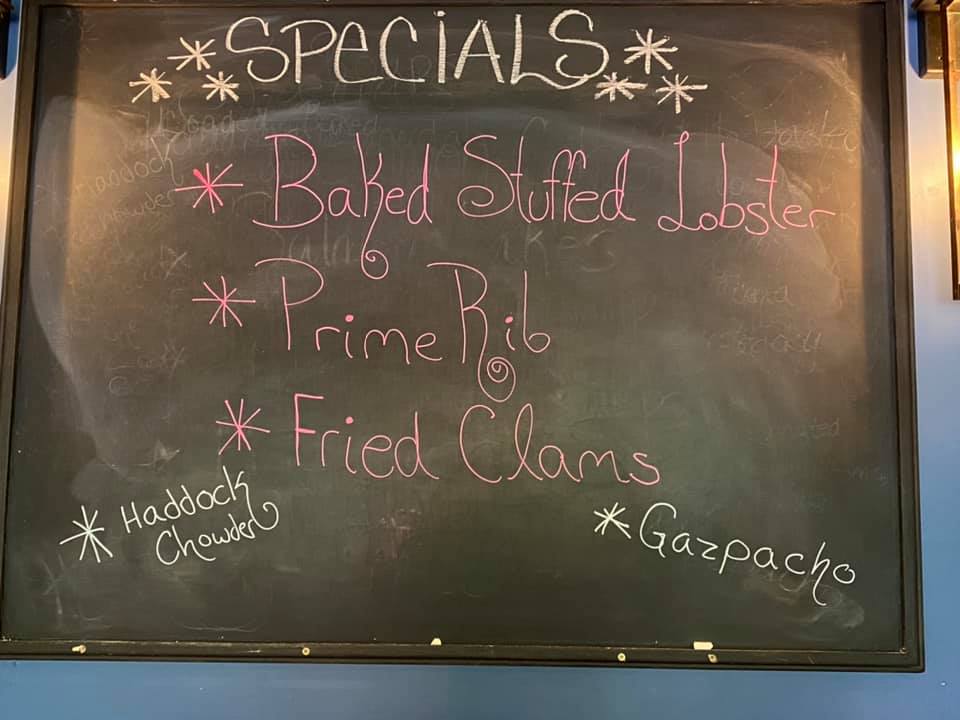 SPECIALS
* Baked Stuffed Lobster
* Prime Rib
* Fried Clams
* Haddock
Chowder
* Gazpacho